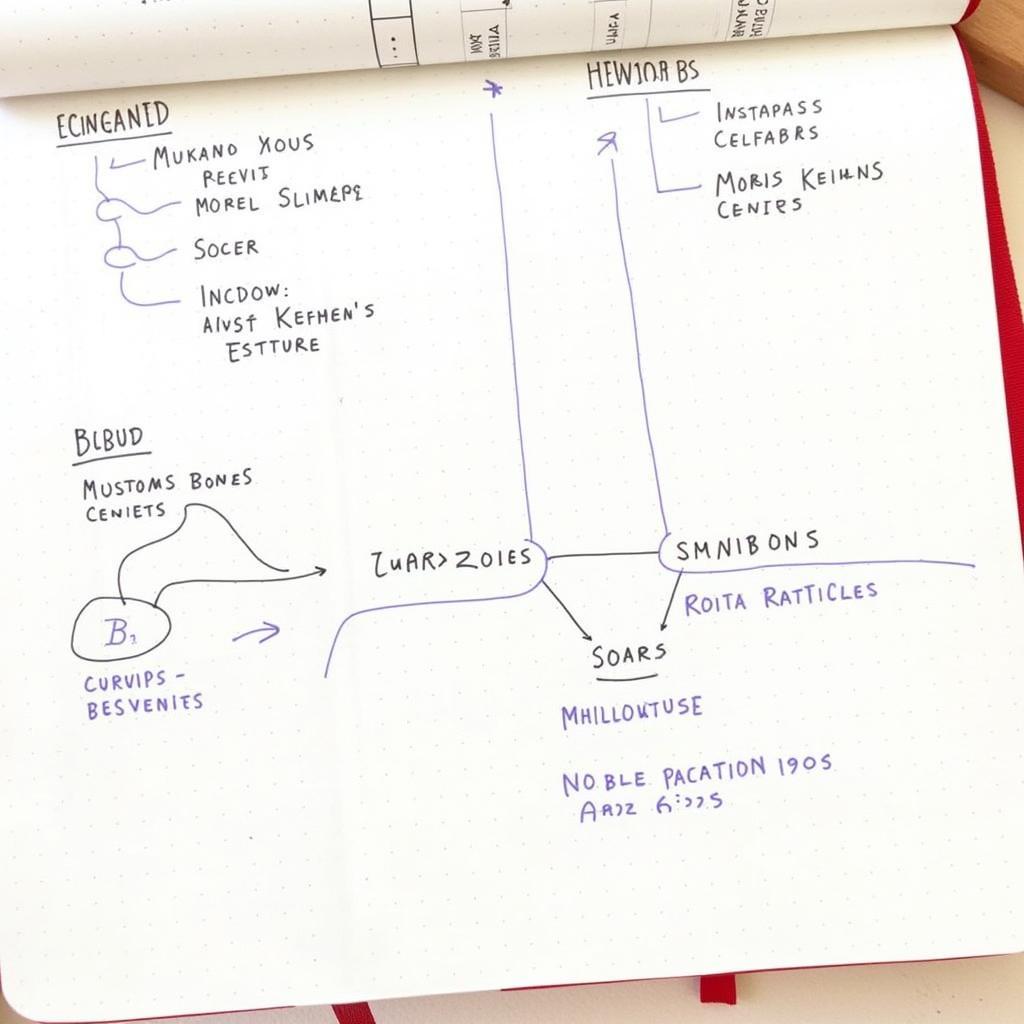 ECINGANED
MUKANO XOUS
REEVIT
MOREL SLIMEPE
SOCER
INCDOW:
AIVST KEFHEN'S
ESTTURE
HEW10.R BS
INSTAPASS
CELFABRS
MORIS KEIHLNS
CENIRS
BLBUD
MUSTOMS BONES
CENIETS
B₂
CURVIPS -
BESVENITS
ZUAR>ZOIES
SMNIBONS
ROITA RATTICLES
SOARS
MHILLOWTUSE
NOBLE PACATION 190S